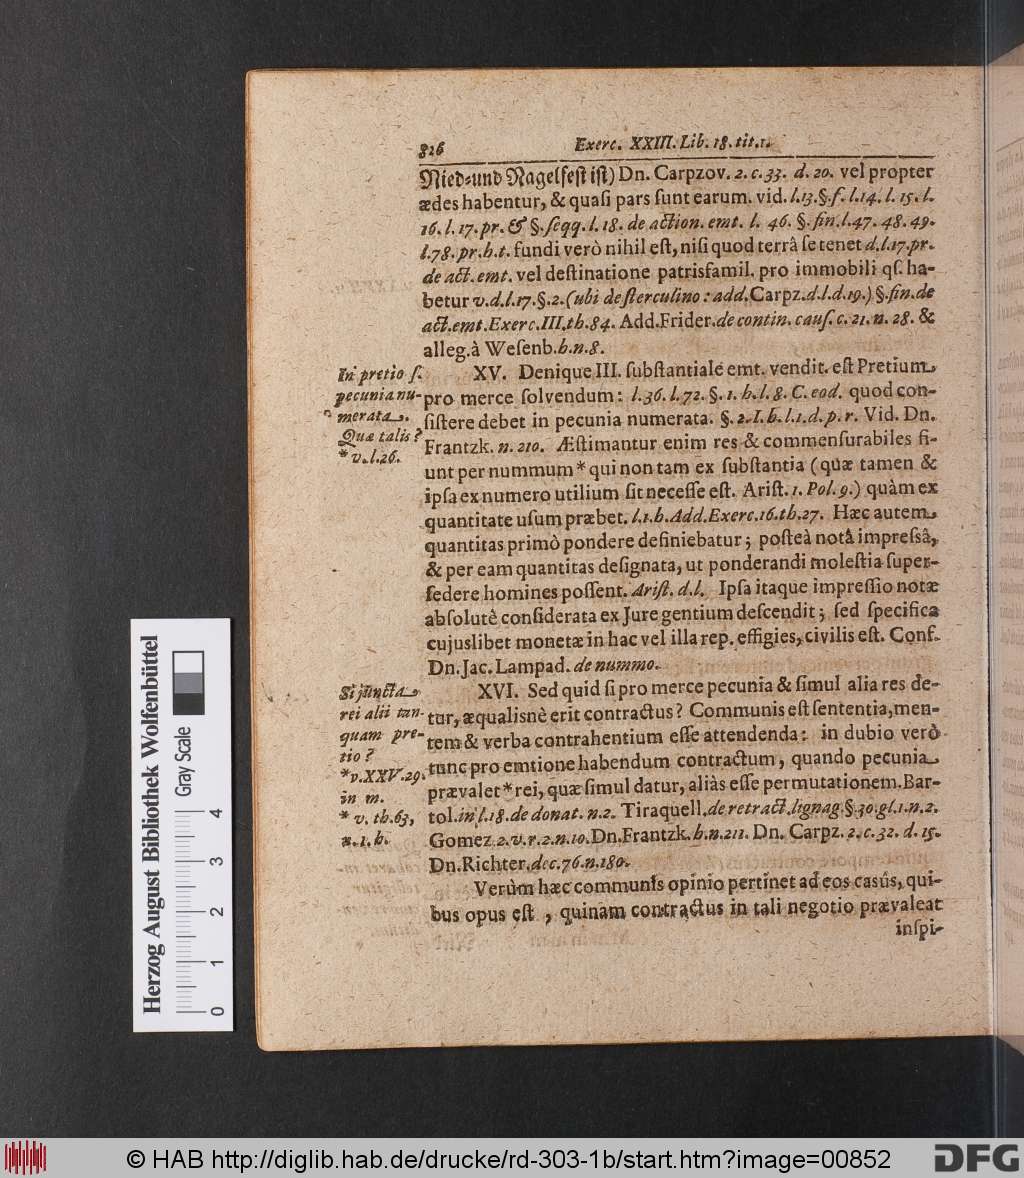 826 Exerc. XXIII. Lib. 18. tit. 1.
Nied-und Nagelfest ist) Dn. Carpzov. 2. c. 33. d. 20. vel propter
ædes habentur, & quasi pars sunt earum. vid. l. 13. §. f. l. 14. l. 15. l.
16. l. 17. pr. & §. seqq. l. 18. de action. emt. l. 46. §. fin. l. 47. 48. 49.
l. 78. pr. h. t. fundi verò nihil est, nisi quod terrâ se tenet d. l. 17. pr.
de act. emt. vel destinatione patrisfamil. pro immobili qs. ha-
betur v. d. l. 17. §. 2. (ubi de sterculino: add. Carpz. d. l. d. 19.) §. fin. de
act. emt. Exerc. III. th. 84. Add. Frider. de contin. caus. c. 21. n. 28. &
alleg. à Wesenb. h. n. 8.
In pretio s.
pecunia nu-
merata.
Quæ talis?
* v. l. 26.
XV. Denique III. substantiale emt. vendit. est Pretium
pro merce solvendum: l. 36. l. 72. §. 1. h. l. 8. C. eod. quod con-
sistere debet in pecunia numerata. §. 2. I. h. l. 1. d. p. r. Vid. Dn.
Frantzk. n. 210. Æstimantur enim res & commensurabiles fi-
unt per nummum * qui non tam ex substantia (quæ tamen &
ipsa ex numero utilium sit necesse est. Arist. 1. Pol. 9.) quàm ex
quantitate usum præbet. l. 1. h. Add. Exerc. 16. th. 27. Hæc autem
quantitas primò pondere definiebatur; posteà notâ impressâ,
& per eam quantitas designata, ut ponderandi molestia super-
sedere homines possent. Arist. d. l. Ipsa itaque impressio notæ
absolutè considerata ex Jure gentium descendit; sed specifica
cujuslibet monetæ in hac vel illa rep. effigies, civilis est. Conf.
Dn. Jac. Lampad. de nummo.
Si juncta
rei alii tan-
quam pre-
tio?
* v. XXV. 29.
in m.
* v. th. 63,
n. 1. h.
XVI. Sed quid si pro merce pecunia & simul alia res de-
tur, æqualisnè erit contractus? Communis est sententia, men-
tem & verba contrahentium esse attendenda: in dubio verò
tunc pro emtione habendum contractum, quando pecunia
prævalet * rei, quæ simul datur, aliàs esse permutationem. Bar-
tol. in l. 18. de donat. n. 2. Tiraquell. de retract. lignag. §. 30. gl. 1. n. 2.
Gomez. 2. v. r. 2. n. 10. Dn. Frantzk. h. n. 211. Dn. Carpz. 2. c. 32. d. 15.
Dn. Richter. dec. 76. n. 180.
Verùm hæc communis opinio pertinet ad eos casus, qui-
bus opus est, quinam contractus in tali negotio prævaleat
inspi-
Herzog August Bibliothek Wolfenbüttel
Gray Scale
0 1 2 3 4
© HAB http://diglib.hab.de/drucke/rd-303-1b/start.htm?image=00852
DFG